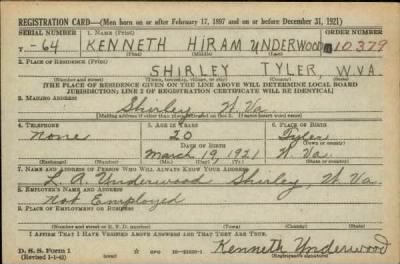 REGISTRATION CARD—(Men born on or after February 17, 1897 and on or before December 31, 1921)
SERIAL NUMBER 1. NAME (Print) ORDER NUMBER
T-64 KENNETH HIRAM UNDERWOOD 10,379
(First) (Middle) (Last)
2. PLACE OF RESIDENCE (Print)
SHIRLEY TYLER, W.VA.
(Number and street) (Town, township, village, or city) (County) (State)
[THE PLACE OF RESIDENCE GIVEN ON THE LINE ABOVE WILL DETERMINE LOCAL BOARD
JURISDICTION; LINE 2 OF REGISTRATION CERTIFICATE WILL BE IDENTICAL]
3. MAILING ADDRESS
Shirley W. Va.
[Mailing address if other than place indicated on line 2. If same insert word same]
4. TELEPHONE 5. AGE IN YEARS 6. PLACE OF BIRTH
None 20 Tyler
DATE OF BIRTH (Town or county)
March 19, 1921 W. Va.
(Exchange) (Number) (Mo.) (Day) (Yr.) (State or country)
7. NAME AND ADDRESS OF PERSON WHO WILL ALWAYS KNOW YOUR ADDRESS
L. A. Underwood Shirley, W. Va.
8. EMPLOYER'S NAME AND ADDRESS
Not Employed
9. PLACE OF EMPLOYMENT OR BUSINESS
(Number and street or R. F. D. number) (Town) (County) (State)
I AFFIRM THAT I HAVE VERIFIED ABOVE ANSWERS AND THAT THEY ARE TRUE.
D. S. S. Form 1
(Revised 1-1-42) (over) Kenneth Underwood
(Registrant's signature)